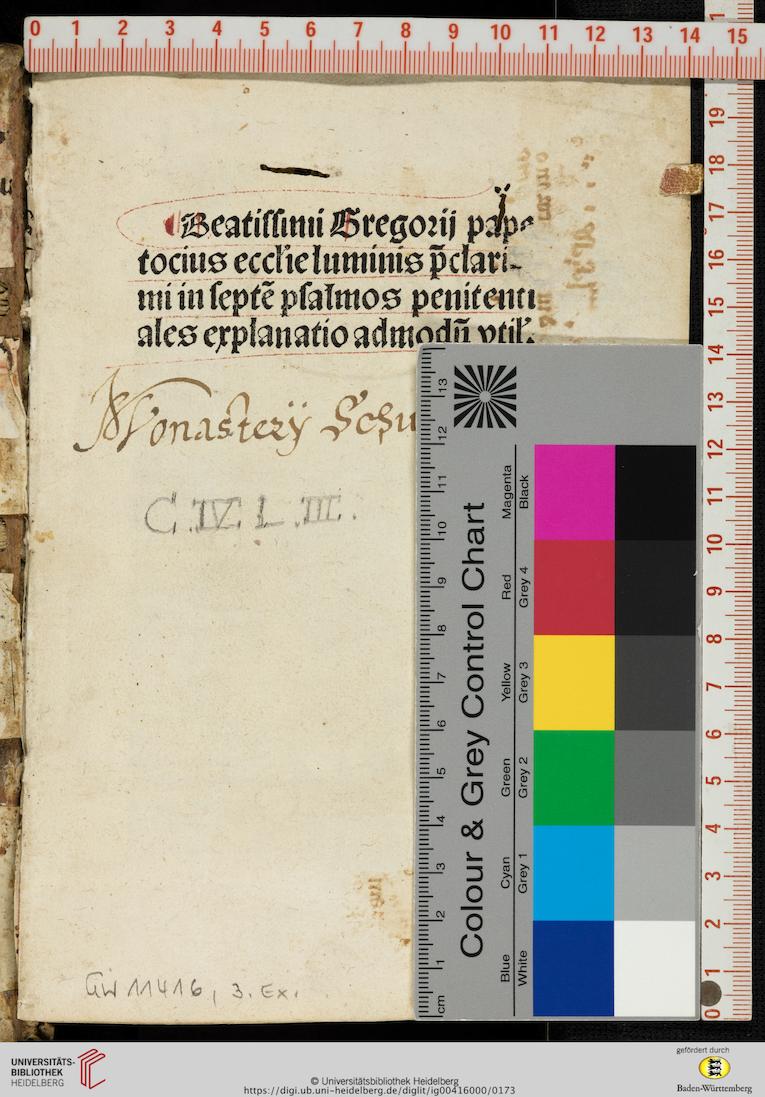 0 1 2 3 4 5 6 7 8 9 10 11 12 13 14 15
Beatissimi Gregorij pape
tocius ecclīe luminis p̄clari-
mi in septē psalmos penitenti
ales explanatio admodū vtil'.
Monasterÿ Schu
C.IV. L.III.
GW 11416, 3. Ex.
Colour & Grey Control Chart
Blue Cyan Green Yellow Red Magenta
White Grey 1 Grey 2 Grey 3 Grey 4 Black
cm 1 2 3 4 5 6 7 8 9 10 11 12 13
0 1 2 3 4 5 6 7 8 9 10 11 12 13 14 15 16 17 18 19
UNIVERSITÄTS-
BIBLIOTHEK
HEIDELBERG
© Universitätsbibliothek Heidelberg
https://digi.ub.uni-heidelberg.de/diglit/ig00416000/0173
gefördert durch
Baden-Württemberg